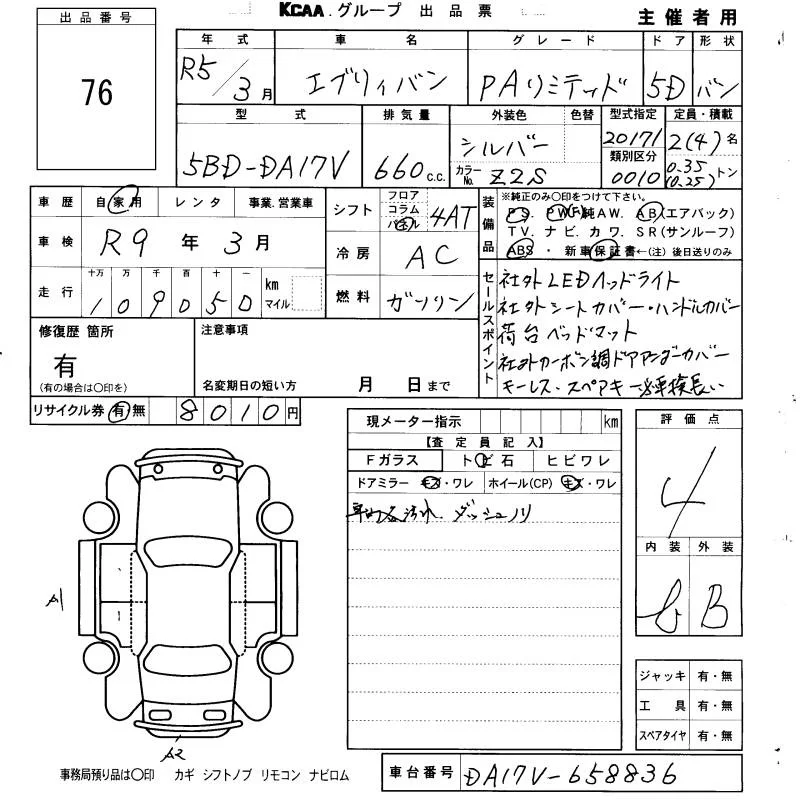 KCAA.グループ 出品票
主催者用
出品番号
76
年式 車名 グレード ドア 形状
R5/3月 エブリィバン PAリミテッド 5D バン
型式 排気量 外装色 色替 型式指定 定員・積載
5BD-DA17V 660c.c. シルバー カラーNo. Z2S 20171 類別区分 0010 2(4)名 0.35(0.25)トン
車歴 自家用 レンタ 事業.営業車
シフト フロア コラム パネル 4AT
装備品 ※純正のみ〇印をつけて下さい。
PS. PW(F)純AW. AB(エアバック)
TV. ナビ. カワ. SR(サンルーフ)
ABS・新車保証書←(注)後日送りのみ
車検 R9年3月
冷房 AC
走行 十万 万 千 百 十 一
109050 km マイル
燃料 ガソリン
セールスポイント
社外LEDヘッドライト
社外シートカバー・ハンドルカバー
荷台ベッドマット
社外カーボン調ドアアンダーカバー
キーレス・スペアキー 車検長い
修復歴 箇所
有
(有の場合は〇印を)
注意事項
名変期日の短い方 月 日まで
リサイクル券 有 無 8010円
現メーター指示 km
【査定員記入】
Fガラス トビ石 ヒビワレ
ドアミラー キズ・ワレ ホイール(CP) キズ・ワレ
ダッシュノリ
評価点
4
内装 外装
B
A1
A2
ジャッキ 有・無
工具 有・無
スペアタイヤ 有・無
事務局預り品は〇印 カギ シフトノブ リモコン ナビロム
車台番号 DA17V-658836